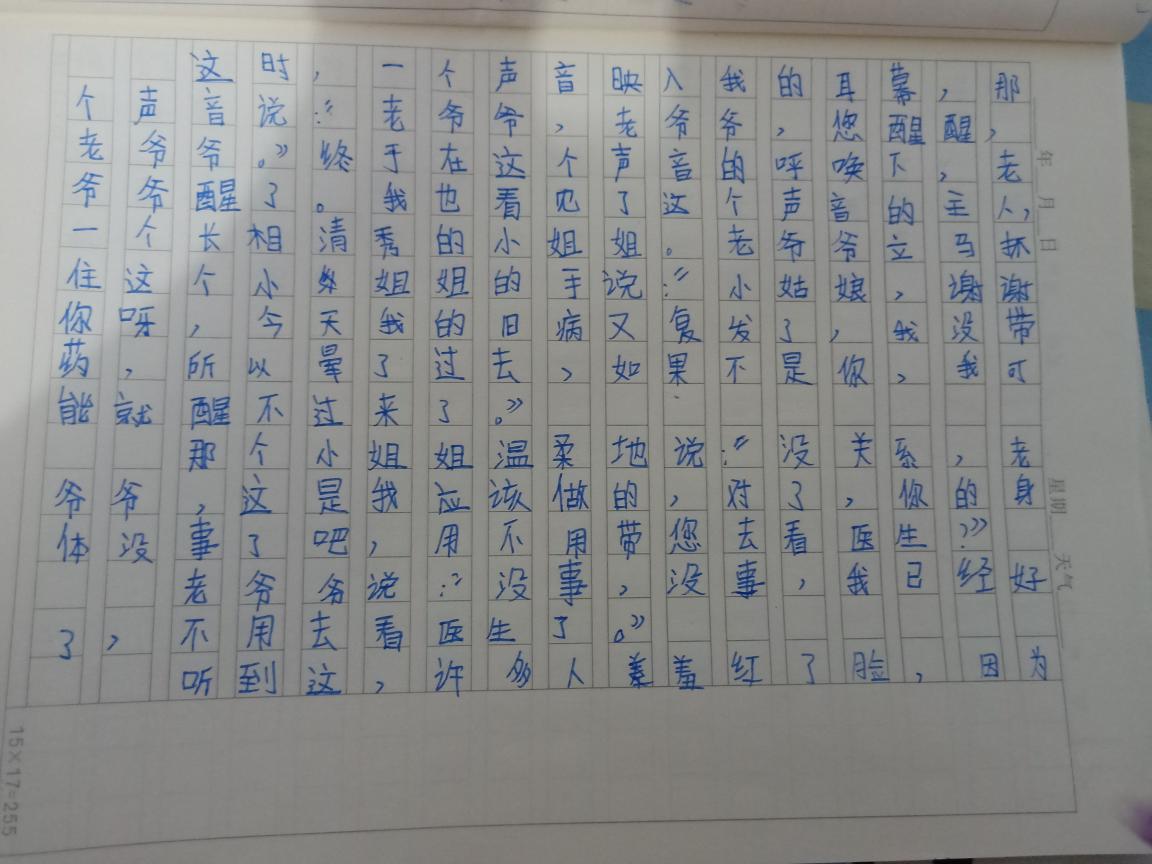 这时，一个声音映入我的耳幕，那
个声音说：“老爷爷，老爷爷，您醒醒，
老爷爷。”终于在这个声音的呼唤下，老
爷爷醒了。我也看见了这个声音的主人，
一个长相清秀的小姐姐。老爷爷立马抓
住这个小姐姐的手说：“小姑娘，谢谢
你呀，今天我的旧病又复发了，我没带
药，所以晕了过去，如果不是你，我可
能就醒不过来了。”
那个小姐姐温柔地说：“没关系，老
爷爷，这是我应该做的，对了，你的身
体没事了吧，用不用带您去看医生？”
老爷爷说：“没事，没事，我已经好
了，不用去看医生了。”
听到这，许多人羞羞红了脸，因为
年 月 日
星期
天气
15×17=255